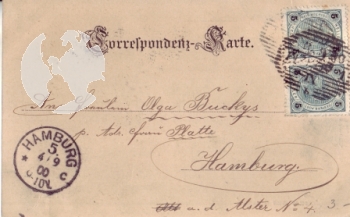 Correspondenz-Karte.
5 5
5 5
An Fräulein Olga Buckys
p. Adr. Frau Platte
Hamburg
a. d. Alster No 4. 3
HAMBURG
5.
4/9
00
* C